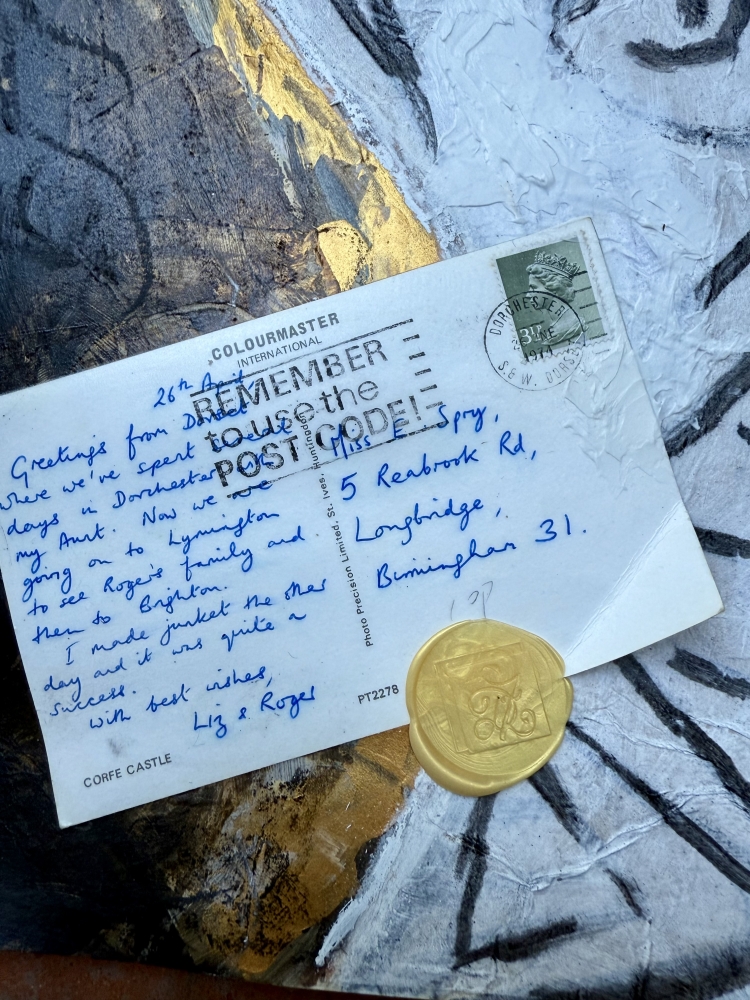 COLOURMASTER
INTERNATIONAL
REMEMBER
to use the
POST CODE!
DORCHESTER
1974
S. & W. DORSET
26th April
Greetings from Dorset
where we've spent
days in Dorchester
my Aunt. Now we are
going on to Lymington
to see Roger's family and
then to Brighton.
I made junket the other
day and it was quite a
success.
with best wishes,
Liz & Roger
Miss E Spry,
5 Reabrook Rd,
Longbridge,
Birmingham 31.
Photo Precision Limited, St. Ives, Huntingdon
PT2278
CORFE CASTLE